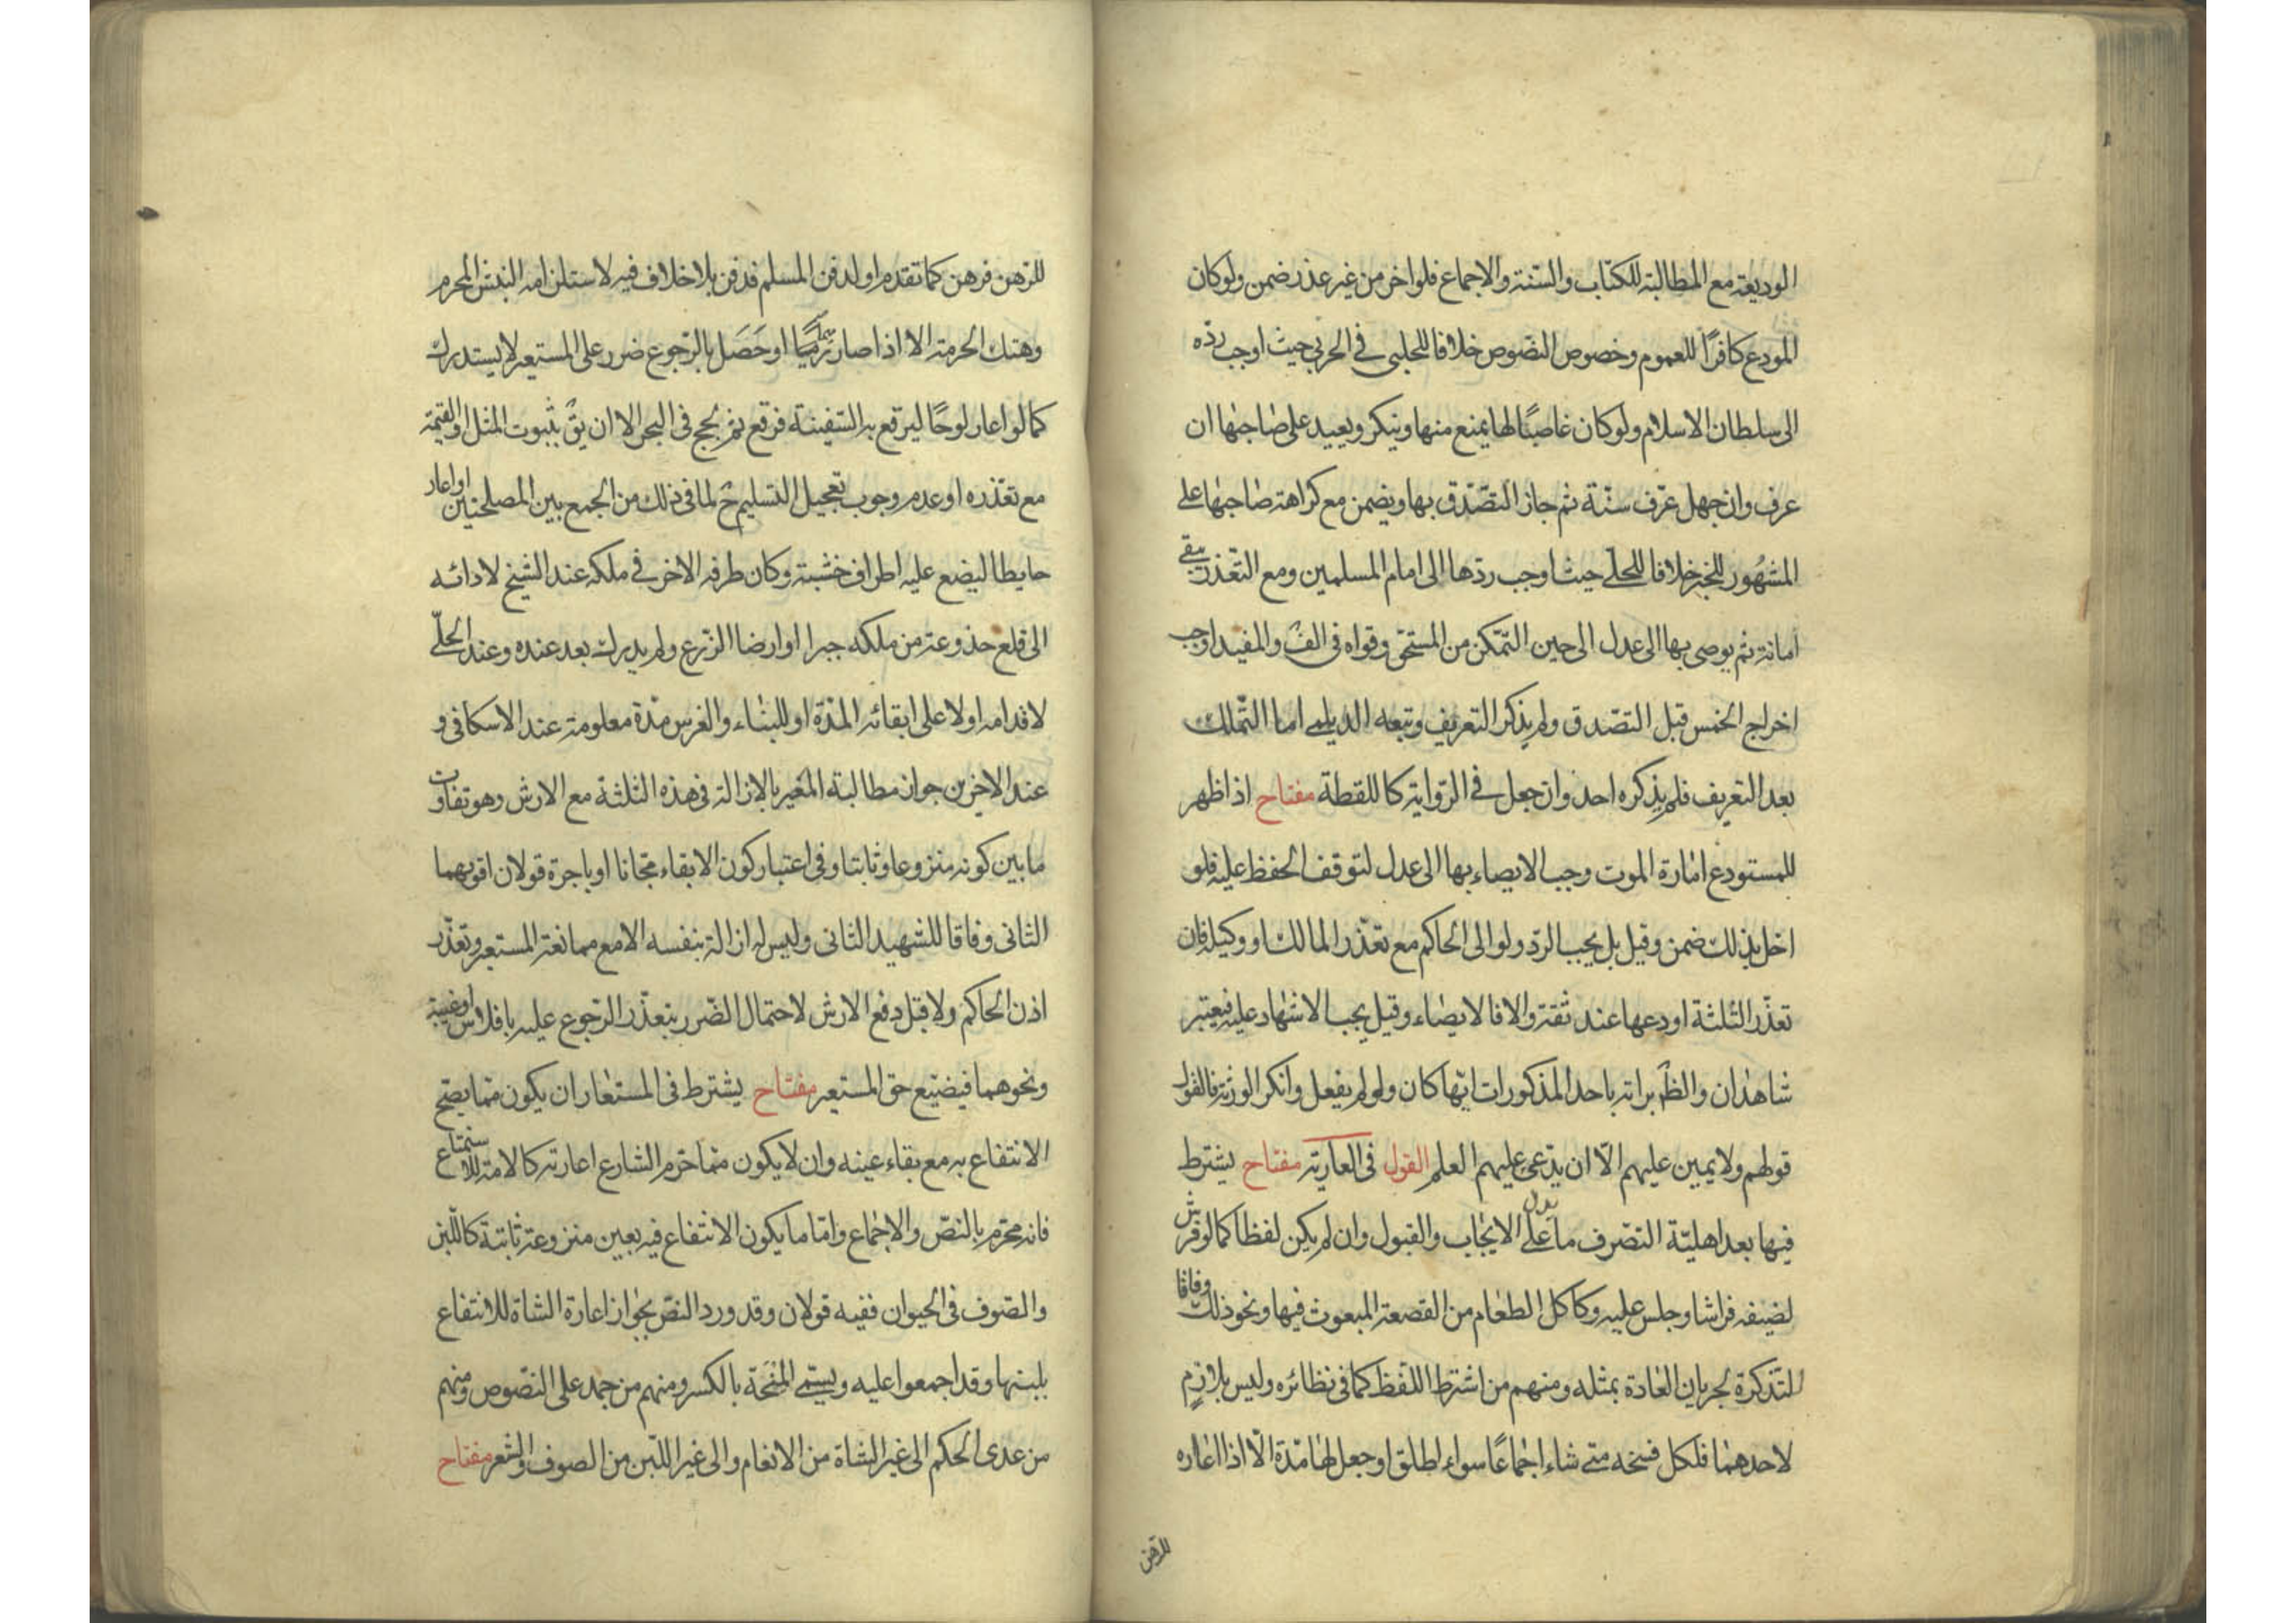 الوديعة مع المطالبة للكتاب والسنة والاجماع فلو اخر من غير عذر ضمن ولو كان
المودع كافرًا للعموم وخصوص النصوص خلافا للحلبي في الحربي حيث اوجب ردّه
الى سلطان الاسلام ولو كان غاصبًا لها يمنع منها وينكر ويعيد على صاحبها ان
عرف وان جهل عرّف سنّة ثم جاز التصّدق بها ويضمن مع كراهة صاحبها على
المشهُور للخبر خلافا للحلّي حيث اوجب ردّها الى امام المسلمين ومع التعّذر يبقى
امانة ثم يوصى بها الى عدل الى حين التمّكن من المستحق وقواه في الفٌ والمفيد اوجب
اخراج الخمس قبل التصّدق ولم يذكر التعريف وتبعه الديلمي اما التّملك
بعد التعريف فلم يذكره احد وان جعل في الرّواية كاللقطة مفتاح اذا ظهر
للمستودع امارة الموت وجب الايصاء بها الى عدل لتوقف الحفظ عليه فلو
اخل بذلك ضمن وقيل بل يجب الردّ ولو الى الحاكم مع تعذّر المالك او وكيله فان
تعذّر الثلثة اودعها عند ثقة والا فالايصاء وقيل يجب الاشهاد عليه فيعتبر
شاهدان والظّ براته باحد المذكورات ايّها كان ولو لم يفعل وانكر الورثة فالقول
قولهم ولا يمين عليهم الّا ان يدّعى عليهم العلم القول في العارية مفتاح يشترط
فيها بعد اهليّة التصّرف ما يدل على الايجاب والقبول وان لم يكن لفظا كما لو فرش
لضيفه فراشا وجلس عليه وكاكل الطعام من القصعة المبعوث فيها ونحو ذلك وفاقا
للتذكرة لجريان العادة بمثله ومنهم من اشترط اللفظ كما في نظائره وليس بلازم
لاحدهما فلكل فسخه متى شاء اجماعًا سواء اطلق او جعل لها مدّة الّا اذا اعاره
للرّهن
للرّهن فرهن كما تقدم او لدفن المسلم فدفن بلا خلاف فيه لاستلزامه النبش المحرم
وهتك الحرمة الا اذا صار رميمًا او حَصَل بالرّجوع ضرر على المستعير لا يستدرك
كما لو اعار لوحًا ليرقع به السّفينة فرقع ثم لجج في البحر الا ان يقٌ بثبوت المثل او القيمة
مع تعّذره او عدم وجوب تعجيل التسليم حٌ لما في ذلك من الجمع بين المصلحتين او اعار
حايطا ليضع عليه اطراف خشبة وكان طرفه الاخر في ملكه عند الشيخ لادائه
الى قلع جذوعة من ملكه جبرا او ارضا للزّرع ولم يدرك بعد عنده وعند الحلّي
لاقدامه اولا على ابقائه المدّة او للبناء والغرس مدّة معلومة عند الاسكافي و
عند الاخرين جواز مطالبة المعير بالازالة في هذه الثلثة مع الارش وهو تفاوت
ما بين كونه منزوعا وثابتا وفي اعتبار كون الابقاء مجّانا او باجرة قولان اقويهما
الثاني وفاقا للشهيد الثاني وليس له ازالة بنفسه الا مع ممانعة المستعير وتعذّر
اذن الحاكم ولا قبل دفع الارش لاحتمال الضّرر بتعذّر الرّجوع عليه بافلاس او غيبة
ونحوهما فيضيّع حق المستعير مفتاح يشترط في المستعار ان يكون ممّا يصّح
الانتفاع به مع بقاء عينه وان لا يكون ممّا حرّم الشارع اعارته كالامة للاستمتاع
فانه محرّم بالنصّ والاجماع وامّا ما يكون الانتفاع فيه بعين منزوعة ثابتة كاللّبن
والصّوف في الحيوان ففيه قولان وقد ورد النصّ بجواز اعارة الشاة للانتفاع
بلبنها وقد اجمعوا عليه ويسمّى المنحَة بالكسر ومنهم من جمد على النصّوص ومنهم
من عدى الحكم الى غير الشاة من الانعام والى غير اللّبن من الصوف والشعر مفتاح